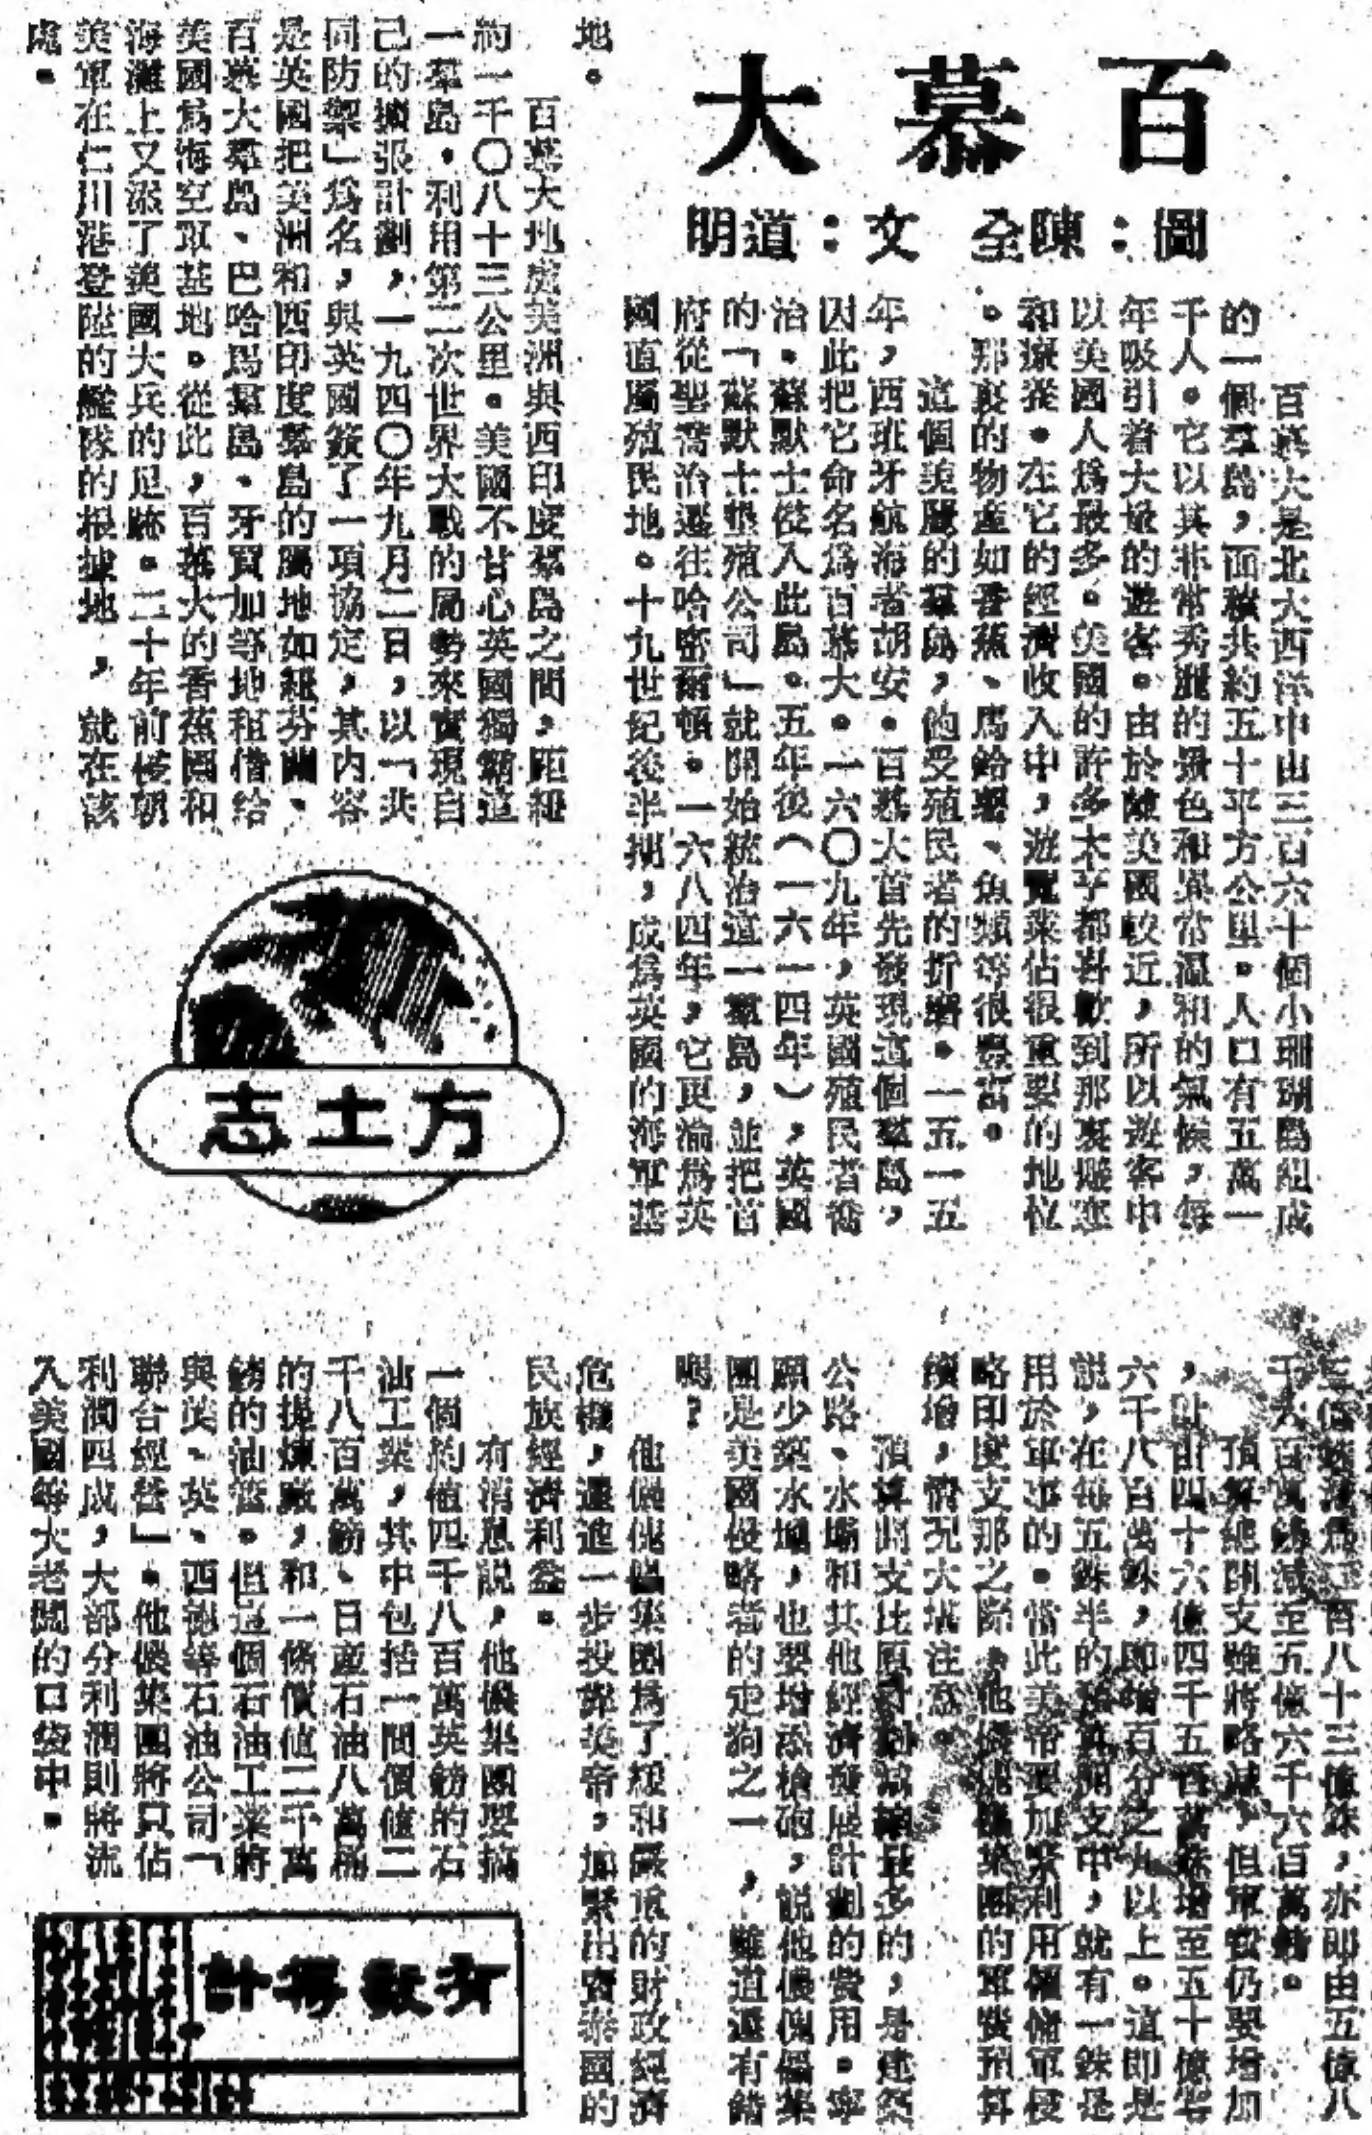 百慕大
圖：陳全　文：道明
百慕大是北大西洋中由三百六十個小珊瑚島組成
的一個羣島，面積共約五十平方公里。人口有五萬一
千人。它以其非常秀麗的景色和異常溫和的氣候，每
年吸引着大量的遊客。由於離美國較近，所以遊客中
以美國人爲最多。美國的許多大亨都喜歡到那裏避寒
和療養。在它的經濟收入中，遊覽業佔很重要的地位
。那裏的物產如香蕉、馬鈴薯、魚類等很豐富。
這個美麗的羣島，飽受殖民者的折磨。一五一五
年，西班牙航海者胡安·百慕大首先發現這個羣島，
因此把它命名爲百慕大。一六〇九年，英國殖民者喬
治·蘇默士從入此島。五年後（一六一四年），英國
的「蘇默士墾殖公司」就開始統治這一羣島，並把首
府從聖喬治遷往哈密爾頓。一六八四年，它更淪爲英
國直屬殖民地。十九世紀後半期，成爲英國的海軍基
地。
百慕大地處美洲與西印度羣島之間，距紐
約一千〇八十三公里。美國不甘心英國獨霸這
一羣島，利用第二次世界大戰的局勢來實現自
己的擴張計劃，一九四〇年九月二日，以「共
同防禦」爲名，與英國簽了一項協定，其內容
是英國把美洲和西印度羣島的屬地如紐芬蘭、
百慕大羣島、巴哈馬羣島、牙買加等地租借給
美國爲海空軍基地。從此，百慕大的香蕉園和
海灘上又添了美國大兵的足跡。二十年前侵朝
美軍在仁川港登陸的艦隊的根據地，就在該
處。
方土志
百八十三億銖，亦即由五億八
千六百萬鎊減至五億六千六百萬鎊。
預算總開支雖將略減，但軍費仍要增加
，計由四十六億四千五百萬銖增至五十億零
六千八百萬銖，即增百分之九以上。這即是
說，在每五銖半的預算開支中，就有一銖是
用於軍事的。當此美帝要加緊利用僱傭軍侵
略印度支那之際，他儂傀儡集團的軍費預算
續增，情況大堪注意。
預算開支比原計劃減縮最多的，是建築
公路、水壩和其他經濟發展計劃的費用。寧
願少築水壩，也要增添槍砲，說他儂傀儡集
團是美國侵略者的走狗之一，難道還有錯
嗎？
他儂傀儡集團爲了緩和嚴重的財政經濟
危機，還進一步投靠美帝，加緊出賣泰國的
民族經濟利益。
有消息說，他儂集團要搞
一個約值四千八百萬英鎊的石
油工業，其中包括一間價值二
千八百萬鎊、日產石油八萬桶
的提煉廠，和一條價值二千萬
鎊的油管。但這個石油工業將
與美、英、西德等石油公司「
聯合經營」。他儂集團將只佔
利潤四成，大部分利潤則將流
入美國等大老闆的口袋中。
有數得計